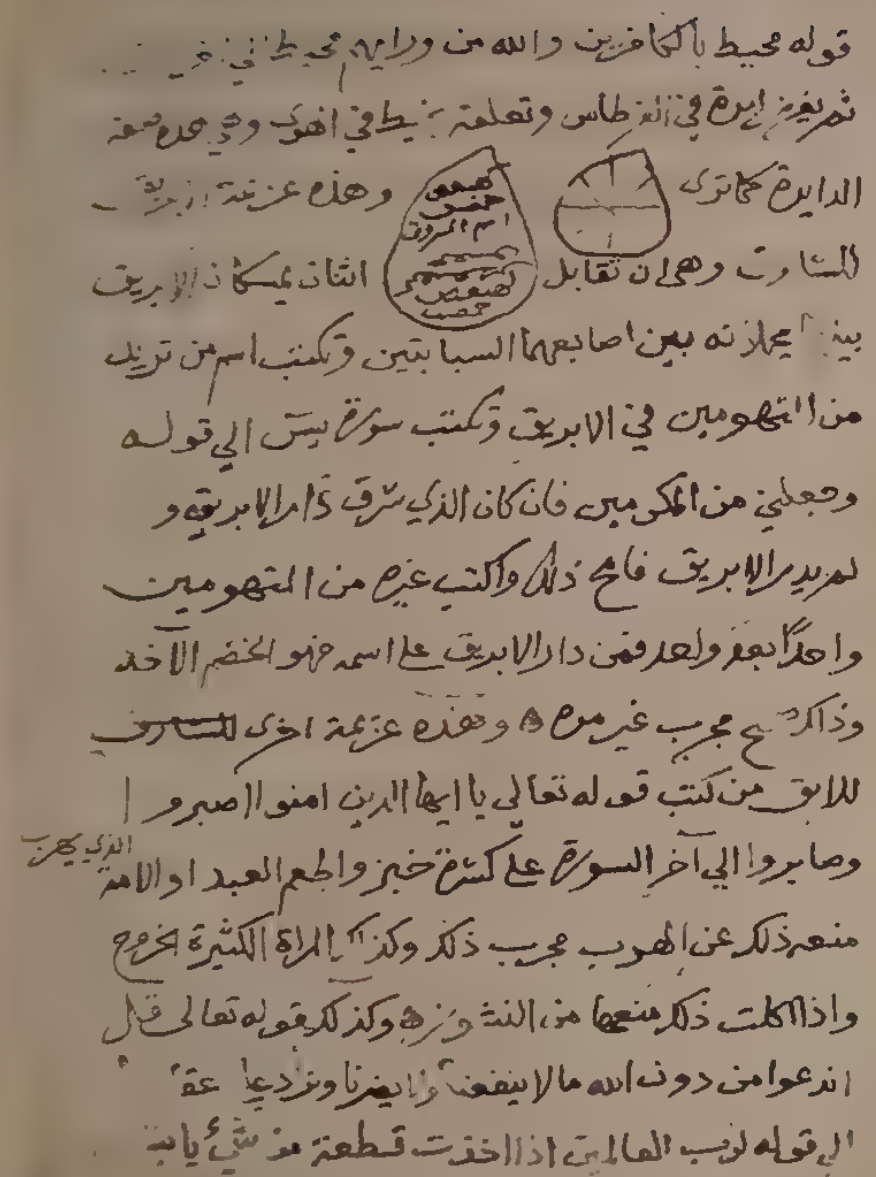 قوله محيط بالكافرين والله من ورايهم محيط
ثم يغرز ابرة في القرطاس وتعلقه بخيط في الهوى وهي هده صفة
الدايرة كما ترى
كهيعص
حمعسق
اسم المسروق
كهيعص
وهذه عزيمة
للسارق وهي ان تقابل اثنان يمسكان الابريق
يحملانه بين اصابعهما السبابتين وتكتب اسم من تريد
من المتهومين في الابريق وتكتب سورة يس الي قوله
وجعلني من المكرمين فان كان الذي سرق دار الابريق و
لم يدير الابريق فامح ذلك واكتب غيره من المتهومين
واحدًا بعد واحد فمن دار الابريق على اسمه فهو الخصم الآخذ
وذاك صح مجرب غير مره ه وهذه عزيمة اخرى للسارق
للابق من كتب قوله تعالي يا ايها الدين امنوا اصبروا
وصابروا الي آخر السورة على كسرة خبز واطعم العبد او الامة
الذي يهرب
منعه ذلك عن الهرب مجرب ذلك وكذلك المراة الكثيرة الخروج
واذا اكلت ذلك منعها من النشوز ه وكذلك قوله تعالى قل
اندعوا من دون الله ما لا ينفعنا ولا يضرنا ونرد على
الى قوله لرب العالمين اذا اخذت قطعة من شيء